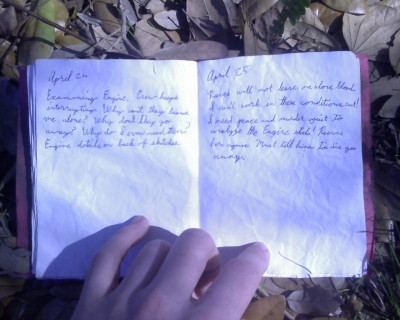 April 24
Examining Engine. Crew keeps
interrupting. Why can't they leave
me alone? Why don't they go
away? Why do I even need them?
Engine details on back of sketches.
April 25
will not leave me alone blood
I can't work in these conditions at!
I need peace and murder quiet to
analyze the Engine stab! Pierce
for again. Must kill him
away.